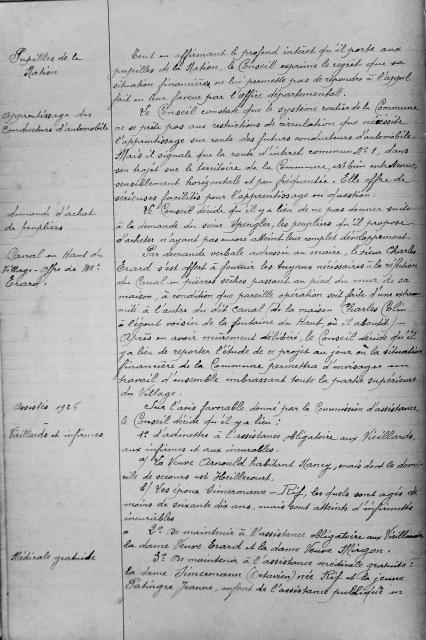 Pupilles de la
Nation
Tout en affirmant le profond intérêt qu'il porte aux
pupilles de la Nation, le Conseil exprime le regret que sa
situation financière ne lui permette pas de répondre à l'appel
fait en leur faveur par l'office départemental.
Apprentissage des
Conducteurs d'automobile
Le Conseil constate que le système routier de la Commune
ne se prête pas aux restrictions de circulation que nécessite
l'apprentissage sur route des futurs conducteurs d'automobile.
Mais il signale que la route d'intérêt commun N° 1, dans
son trajet sur le territoire de la Commune, est bien entretenue,
sensiblement horizontale et peu fréquentée. Elle offre de
sérieuses facilités pour l'apprentissage en question.
demande d'achat
de peupliers
Le Conseil décide qu'il y a lieu de ne pas donner suite
à la demande du sieur Spengler, les peupliers qu'il propose
d'acheter n'ayant pas encore atteint leur complet développement.
Canal en Haut du
Village - Offre de Mr
Erard.
Par demande verbale adressée au maire, le sieur Charles
Erard s'est offert à fournir les tuyaux nécessaires à la réfection
du Canal en pierres sèches passant au pied du mur de sa
maison, à condition que pareille opération soit faite d'une extré-
mité à l'autre du dit Canal (de la maison Charles Colin
à l'égout voisin de la fontaine du Haut, où il aboutit) -
Après en avoir mûrement délibéré, le Conseil décide qu'il
y a lieu de reporter l'étude de ce projet au jour où la situation
financière de la Commune permettra d'envisager un
travail d'ensemble embrassant toute la partie supérieure
du Village.
Assistés 1926
Sur l'avis favorable donné par la Commission d'assistance,
le Conseil décide qu'il y a lieu :
Vieillards et infirmes
1° d'admettre à l'assistance obligatoire aux Vieillards,
aux infirmes et aux incurables.
a/ La Veuve Arnould habitant Nancy, mais dont le domi-
cile de secours est Heillecourt.
b/ Les époux Simermann - Rif, lesquels sont agés de
moins de soixante dix ans, mais sont atteints d'infirmités
incurables
2° de maintenir à l'assistance obligatoire aux Vieillards
la dame Veuve Erard et la dame Veuve Mirgon.
Médicale gratuite
3° De maintenir à l'assistance médicale gratuite :
la dame Simermann (Octavien) née Rif et la jeune
Patingre Jeanne, enfant de l'assistance publique en